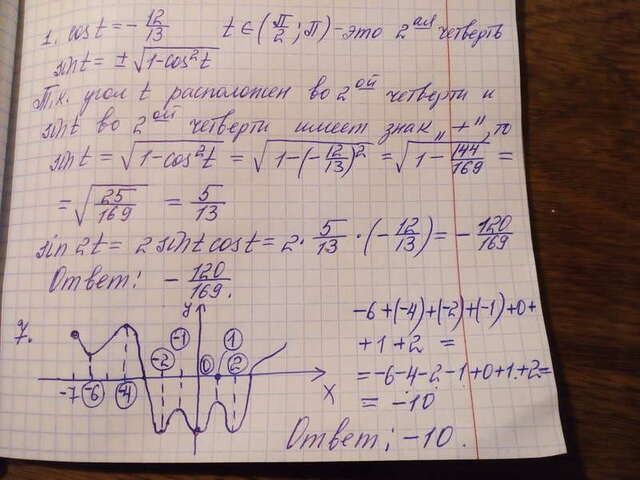 1. cos t = -12/13   t ∈ (П/2; П) - это 2ая четверть
sin t = ± √(1-cos²t)
Т.к. угол t расположен во 2ой четверти и
sin t во 2ой четверти имеет знак „+", то
sin t = √(1-cos²t) = √(1-(-12/13)²) = √(1-144/169) =
= √(25/169) = 5/13
sin 2t = 2 sin t cos t = 2 · 5/13 · (-12/13) = -120/169
Ответ: -120/169.
7.
y
-7 -6 -4 -2 -1 0 1 2
x
-6+(-4)+(-2)+(-1)+0+
+1+2 =
=-6-4-2-1+0+1+2=
= -10
Ответ: -10.